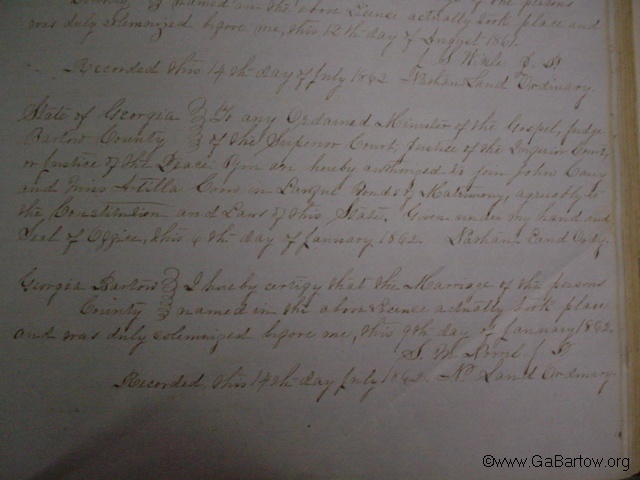 County } named in the above License actually took place and
was duly solemnized before me, this 12th day of August 1861.
J. P.
Recorded this 14th day of July 1862 Nathan Land Ordinary.
State of Georgia } To any Ordained Minister of the Gospel, Judge
Bartow County } of the Superior Court, Justice of the Inferior Court,
or Justice of the Peace. You are hereby authorized to join John
and Miss in the Bonds of Matrimony, agreeably to
the Constitution and Laws of this State. Given under my hand and
Seal of Office, this 6th day of January 1862. Nathan Land Ordy.
Georgia Bartow } I hereby certify that the Marriage of the persons
County } named in the above License actually took place
and was duly solemnized before me, this 9th day of January 1862.
S. M. J P
Recorded, this 14th day July 1862. N. Land Ordinary.
©www.GaBartow.org